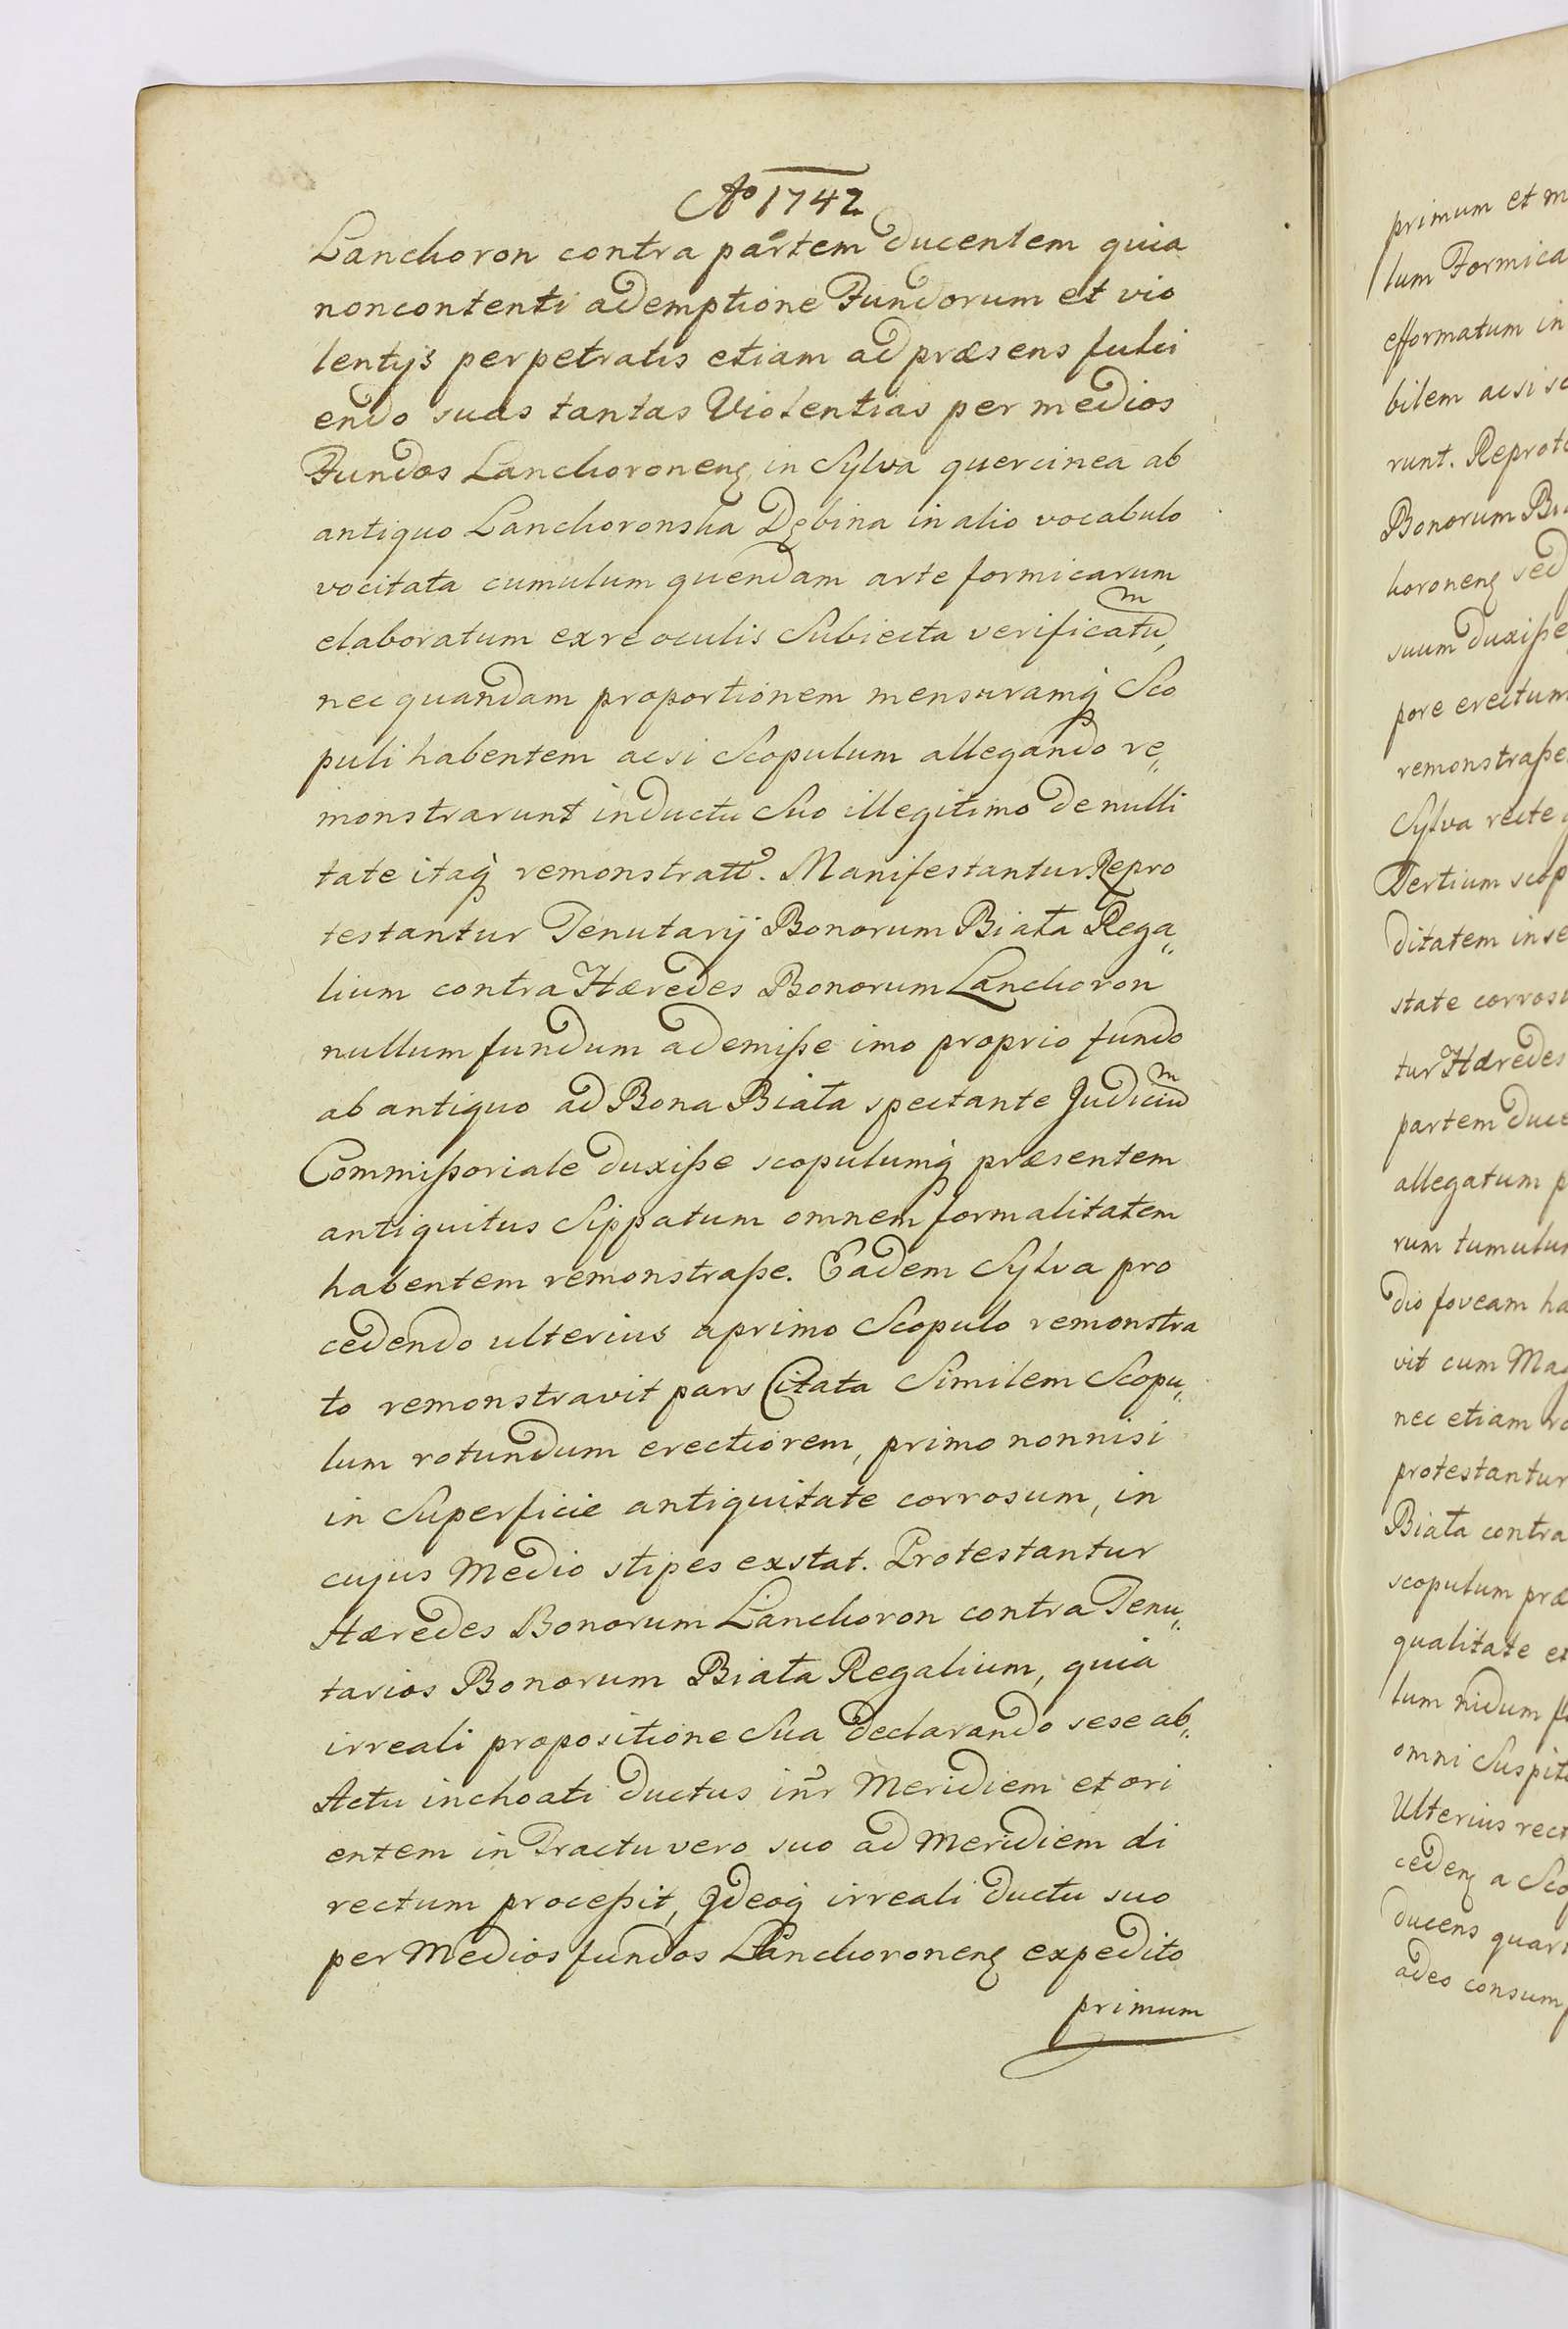 Aº 1742
Lanckoron contra partem ducentem quia
noncontenti ademptione Fundorum et vio
lentijs perpetratis etiam ad præsens fulci
endo suas tantas Violentias per medios
Fundos Lanckoronenę in Sylva quercinea ab
antiquo Lanckoronska Dębina in alio vocabulo
vocitata cumulum quendam arte formicarum
elaboratum ex re oculis Subiecta verificatũ,
nec quandam proportionem mensuramq̷ Sco
puli habentem acsi Scopulum allegando re„
monstrarunt inductu Suo illegitimo de nulli
tate itaq̷ remonstratt. Manifestantur Repro
testantur Tenutarij Bonorum Biała Rega„
lium contra Hæredes Bonorum Lanckoron
nullum fundum ademiße imo proprio fundo
ab antiquo ad Bona Biała spectante Judiciũ
Commißoriale duxiße scopulumq̷ præsentem
antiquitus Sippatum omnem formalitatem
habentem remonstraße. Eadem Sylva pro
cedendo ulterius a primo Scopulo remonstra
to remonstravit pars Citata Similem Scopu„
lum rotundum erectiorem, primo nonnisi
in Superficie antiquitate corrosum, in
cujus Medio stipes exstat. Protestantur
Hæredes Bonorum Lanckoron contra Tenu„
tarios Bonorum Biała Regalium, quia
irreali propositione Sua declarando sese ab„
Actu inchoati ductus inr̃ Meridiem et ori
entem in Tractu vero suo ad Meridiem di
rectum proceßit, Jdeoq̷ irreali ductu suo
per Medios fundos Lanckoronenę expedito
primum
primum et m
lum Formica
efformatum in
bilem acsi sc
runt. Reprote
Bonorum Bia
koronenę sed
suum duxiße
pore erectum
remonstraße
Sylva recte
Tertium scop
ditatem in se
state corros
tur Hæredes
partem duce
allegatum p
rum tumulum
dio foveam ha
vit cum Mag
nec etiam ro
protestantur
Biała contra
scopulum præ
qualitate et
lum nidum
omni Suspit
Ulterius rect
cedenę a Sco
ducens quart
adeo consum